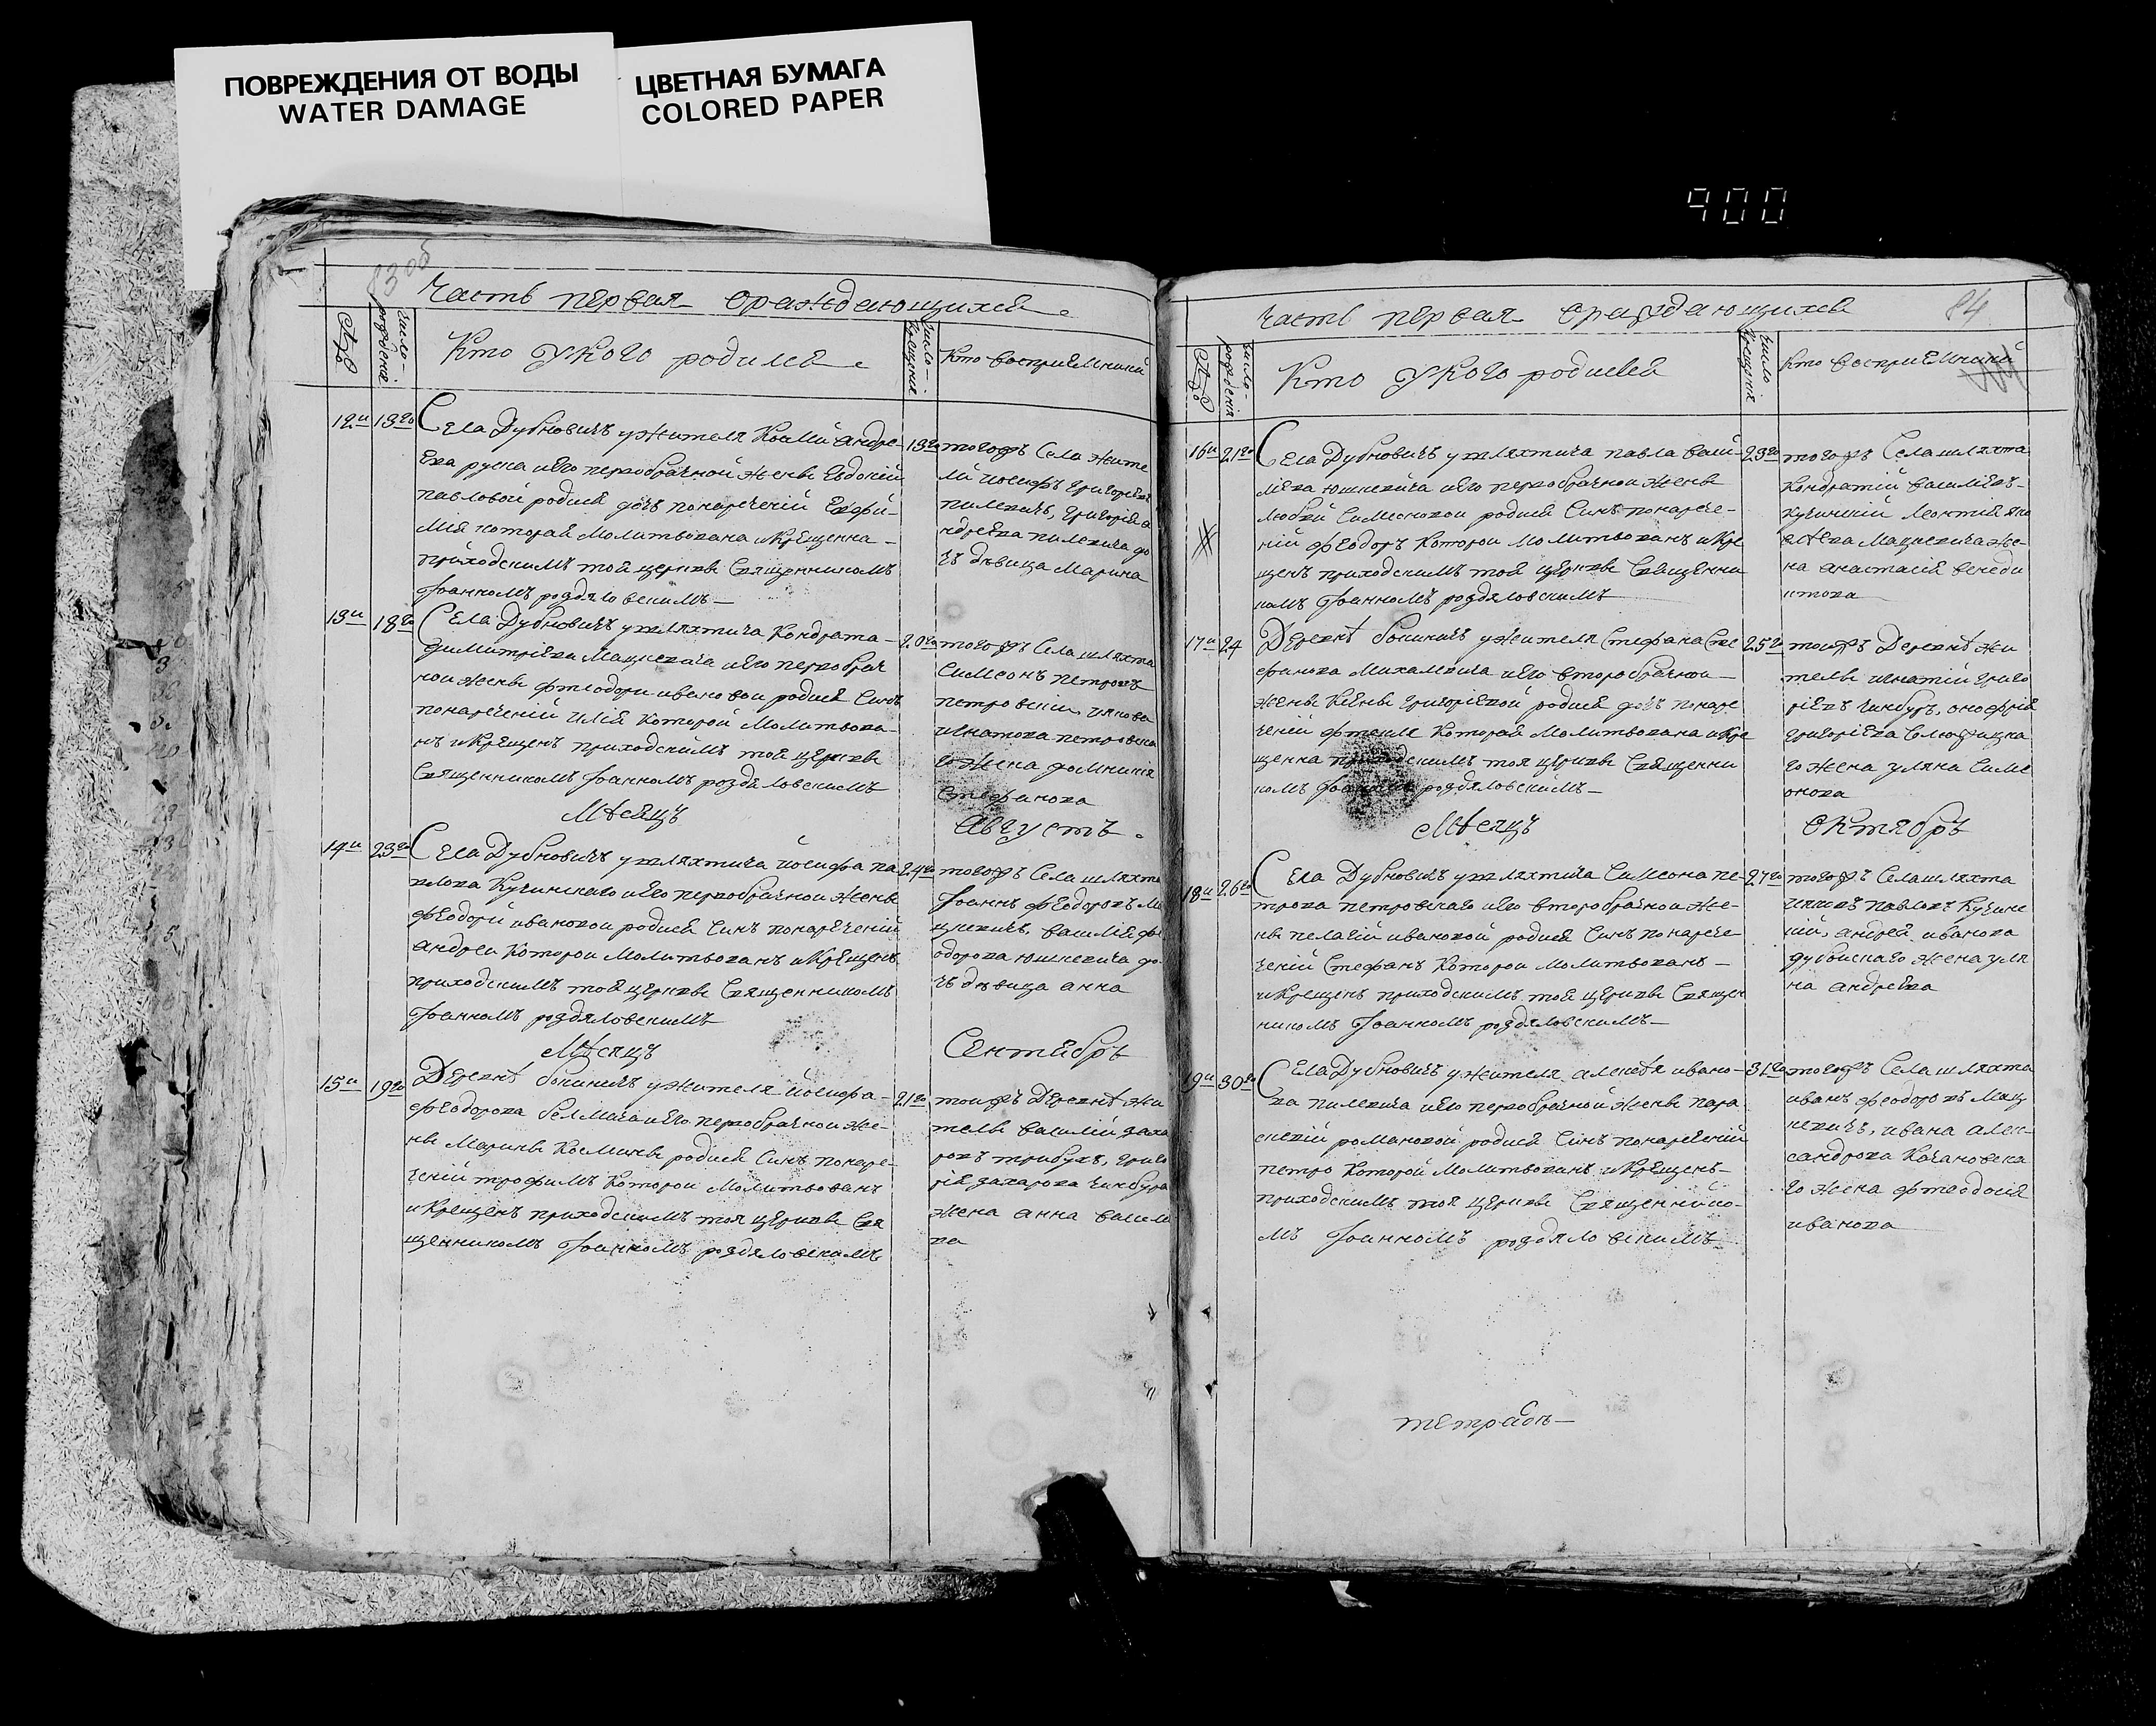 ПОВРЕЖДЕНИЯ ОТ ВОДЫ
WATER DAMAGE
ЦВЕТНАЯ БУМАГА
COLORED PAPER
900
83 об
Часть первая ораждающихся
Число рождения
Кто укого родился
Число крещения
Кто восприемники
12и 13го
Села Дубновичъ ужителя Косми Андре-
ева руска иего первобрачной жены Евдокіи
павловой родися дочъ понареченій Евфи-
мія которая молитвована икрещенна
приходскимъ тоя церкви Священникомъ
Іоанномъ роздяловскимъ
13го
тогожъ Села жите
ли иосифъ григорíевъ
пилевичъ, григорія а
ндреева пилевича до
чъ дѣвица марина
13и 18го
Села Дубновичъ ушляхтича Кондрата
димитріева Мацкевича иего первобрач
ной жены фтеодори ивановой родися Синъ
понареченій илія который Молитвова-
нъ икрещенъ приходскимъ тоя церкви
Священникомъ Іоанномъ роздяловскимъ
20го
тогожъ Села шляхта
Симеонъ петровъ
петровскій, иякова
игнатова петровска
го жена домникія
Стефанова
Мѣсяцъ Августъ
14и 23го
Села Дубновичъ ушляхтича иосифа па
влова Кучинскаго иего первобрачной жены
феодорй ивановой родися Синъ понареченій
андрей который молитвованъ икрещенъ
приходскимъ тоя церкви Священникомъ
Іоанномъ роздяловскимъ
24го
тогожъ Села шляхта
Іоаннъ феодоровъ Ма
цкевичъ, василія фе
одорова юшкевича до
чъ дѣвица анна
Мѣсяцъ Сентябръ
15и 19го
Деревнѣ бокиничъ ужителя иосифа
феодорова Белмача иего первобрачной же-
ны Марины Космины родися Синъ понаре-
ченій трофимъ который молитвованъ
икрещенъ приходскимъ тоя церкви Свя
щенникомъ Іоанномъ роздяловскимъ
21го
тоижъ Деревнѣ жи
тели василій заха
ровъ трибухъ, григо
рія захарова чинбура
жена анна васили
ва
84
Часть первая ораждающихся
Число рождения
Кто укого родися
Число крещения
Кто восприемники
16и 21го
Села Дубновичъ ушляхтича павла васи-
лієва юшкевича иего первобрачной жены
любви Симеоновой родися Синъ понарече-
ній феодоръ который молитвованъ икре
щенъ приходскимъ тоя церкви Священни
комъ Іоанномъ роздяловскимъ
23го
тогожъ Села шляхта
Кондратій василіевъ
кучинскій леонтия яко
влева Мацкевича же-
на анастасія бенеди
ктова
17и 24
Деревнѣ бокиничъ ужителя Стефана Сте
фанова Михалевича иего второбрачной
жены Ксены григоріевой родися дочъ понаре
ченій фтекле которая молитвована икре
щенна приходскимъ тоя церкви Священни
комъ Іоанномъ роздяловскимъ
25го
тоижъ Деревнѣ жи
тели игнатій григо
ріевъ чинбуръ, онофрія
григоріева
го жена уляна Симе
онова
Мѣсяцъ Октябръ
18и 26го
Села Дубновичъ ушляхтича Симеона пе-
трова петровскаго иего второбрачной же-
ны пелагій ивановой родися Синъ понарече
ченій Стефанъ который молитвованъ
икрещенъ приходскимъ тоя церкви Священ
никомъ Іоанномъ роздяловскимъ
27го
тогожъ Села шляхта
павловъ Кучинс
кій, андрея иванова
дубоискаго жена уля
на андреева
19и 30го
Села Дубновичъ ужителя алексѣя ивано-
ва пилевича иего первобрачной жены пара
скевій романовой родися Синъ понареченій
петро который молитвованъ икрещенъ
приходскимъ тоя церкви Священнико-
мъ Іоанномъ роздяловскимъ
31го
тогожъ Села шляхта
иванъ феодоровъ Мац
кевичъ, ивана алек-
сандрова Качановска
го жена фтеодосія
иванова
тетрадь